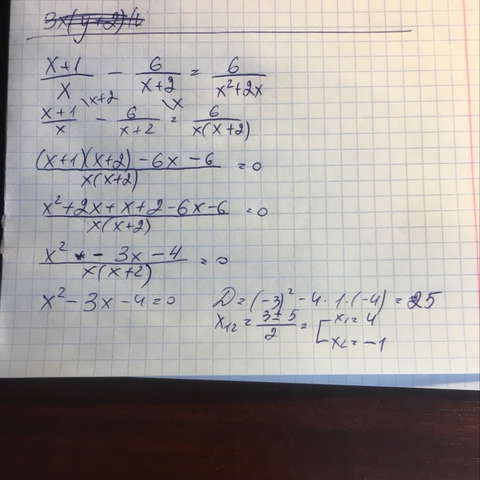 3x(y+2)
(x+1)/x - 6/(x+2) = 6/(x²+2x)
(x+1)/x \x+2 - 6/(x+2) \x = 6/(x(x+2))
((x+1)(x+2) - 6x - 6)/(x(x+2)) = 0
(x²+2x+x+2-6x-6)/(x(x+2)) = 0
(x² - 3x - 4)/(x(x+2)) = 0
x² - 3x - 4 = 0 D = (-3)² - 4·1·(-4) = 25
x₁₂ = (3±5)/2 = [x₁ = 4
x₂ = -1